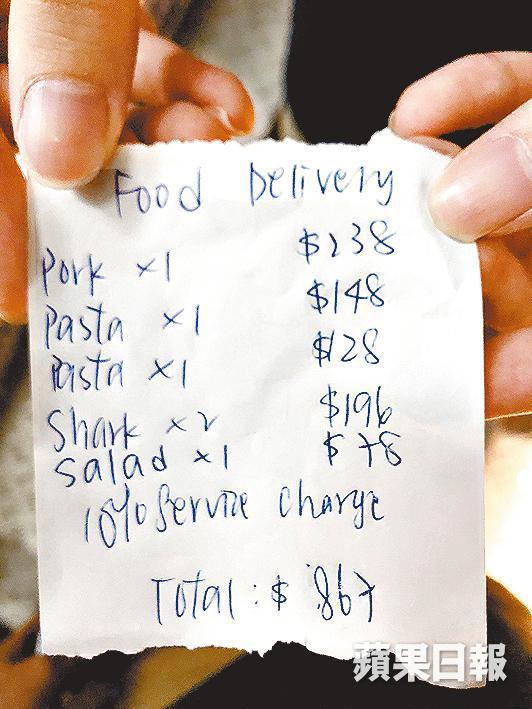 Food Delivery
Pork x1 $238
Pasta x1 $148
Pasta x1 $128
Shark x2 $196
Salad x1 $78
10% Service Charge
Total : $ 867
蘋果日報